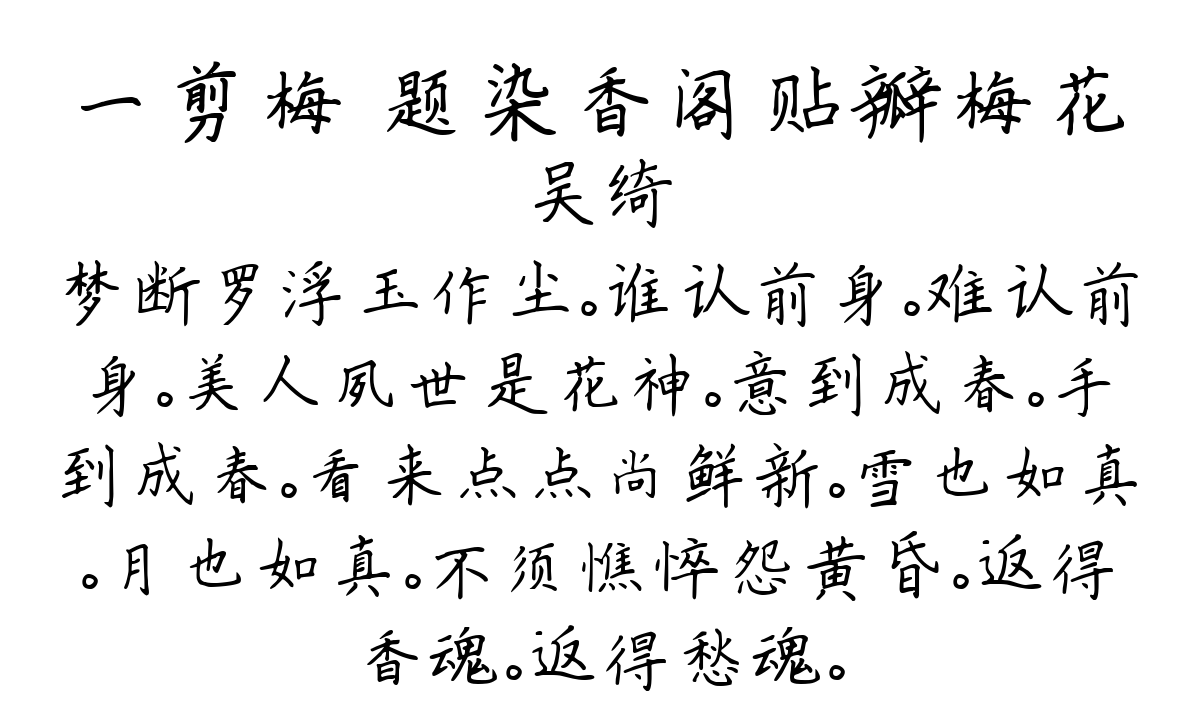 一剪梅 题染香阁贴瓣梅花
吴绮
梦断罗浮玉作尘。谁认前身。难认前
身。美人夙世是花神。意到成春。手
到成春。看来点点尚鲜新。雪也如真
。月也如真。不须憔悴怨黄昏。返得
香魂。返得愁魂。